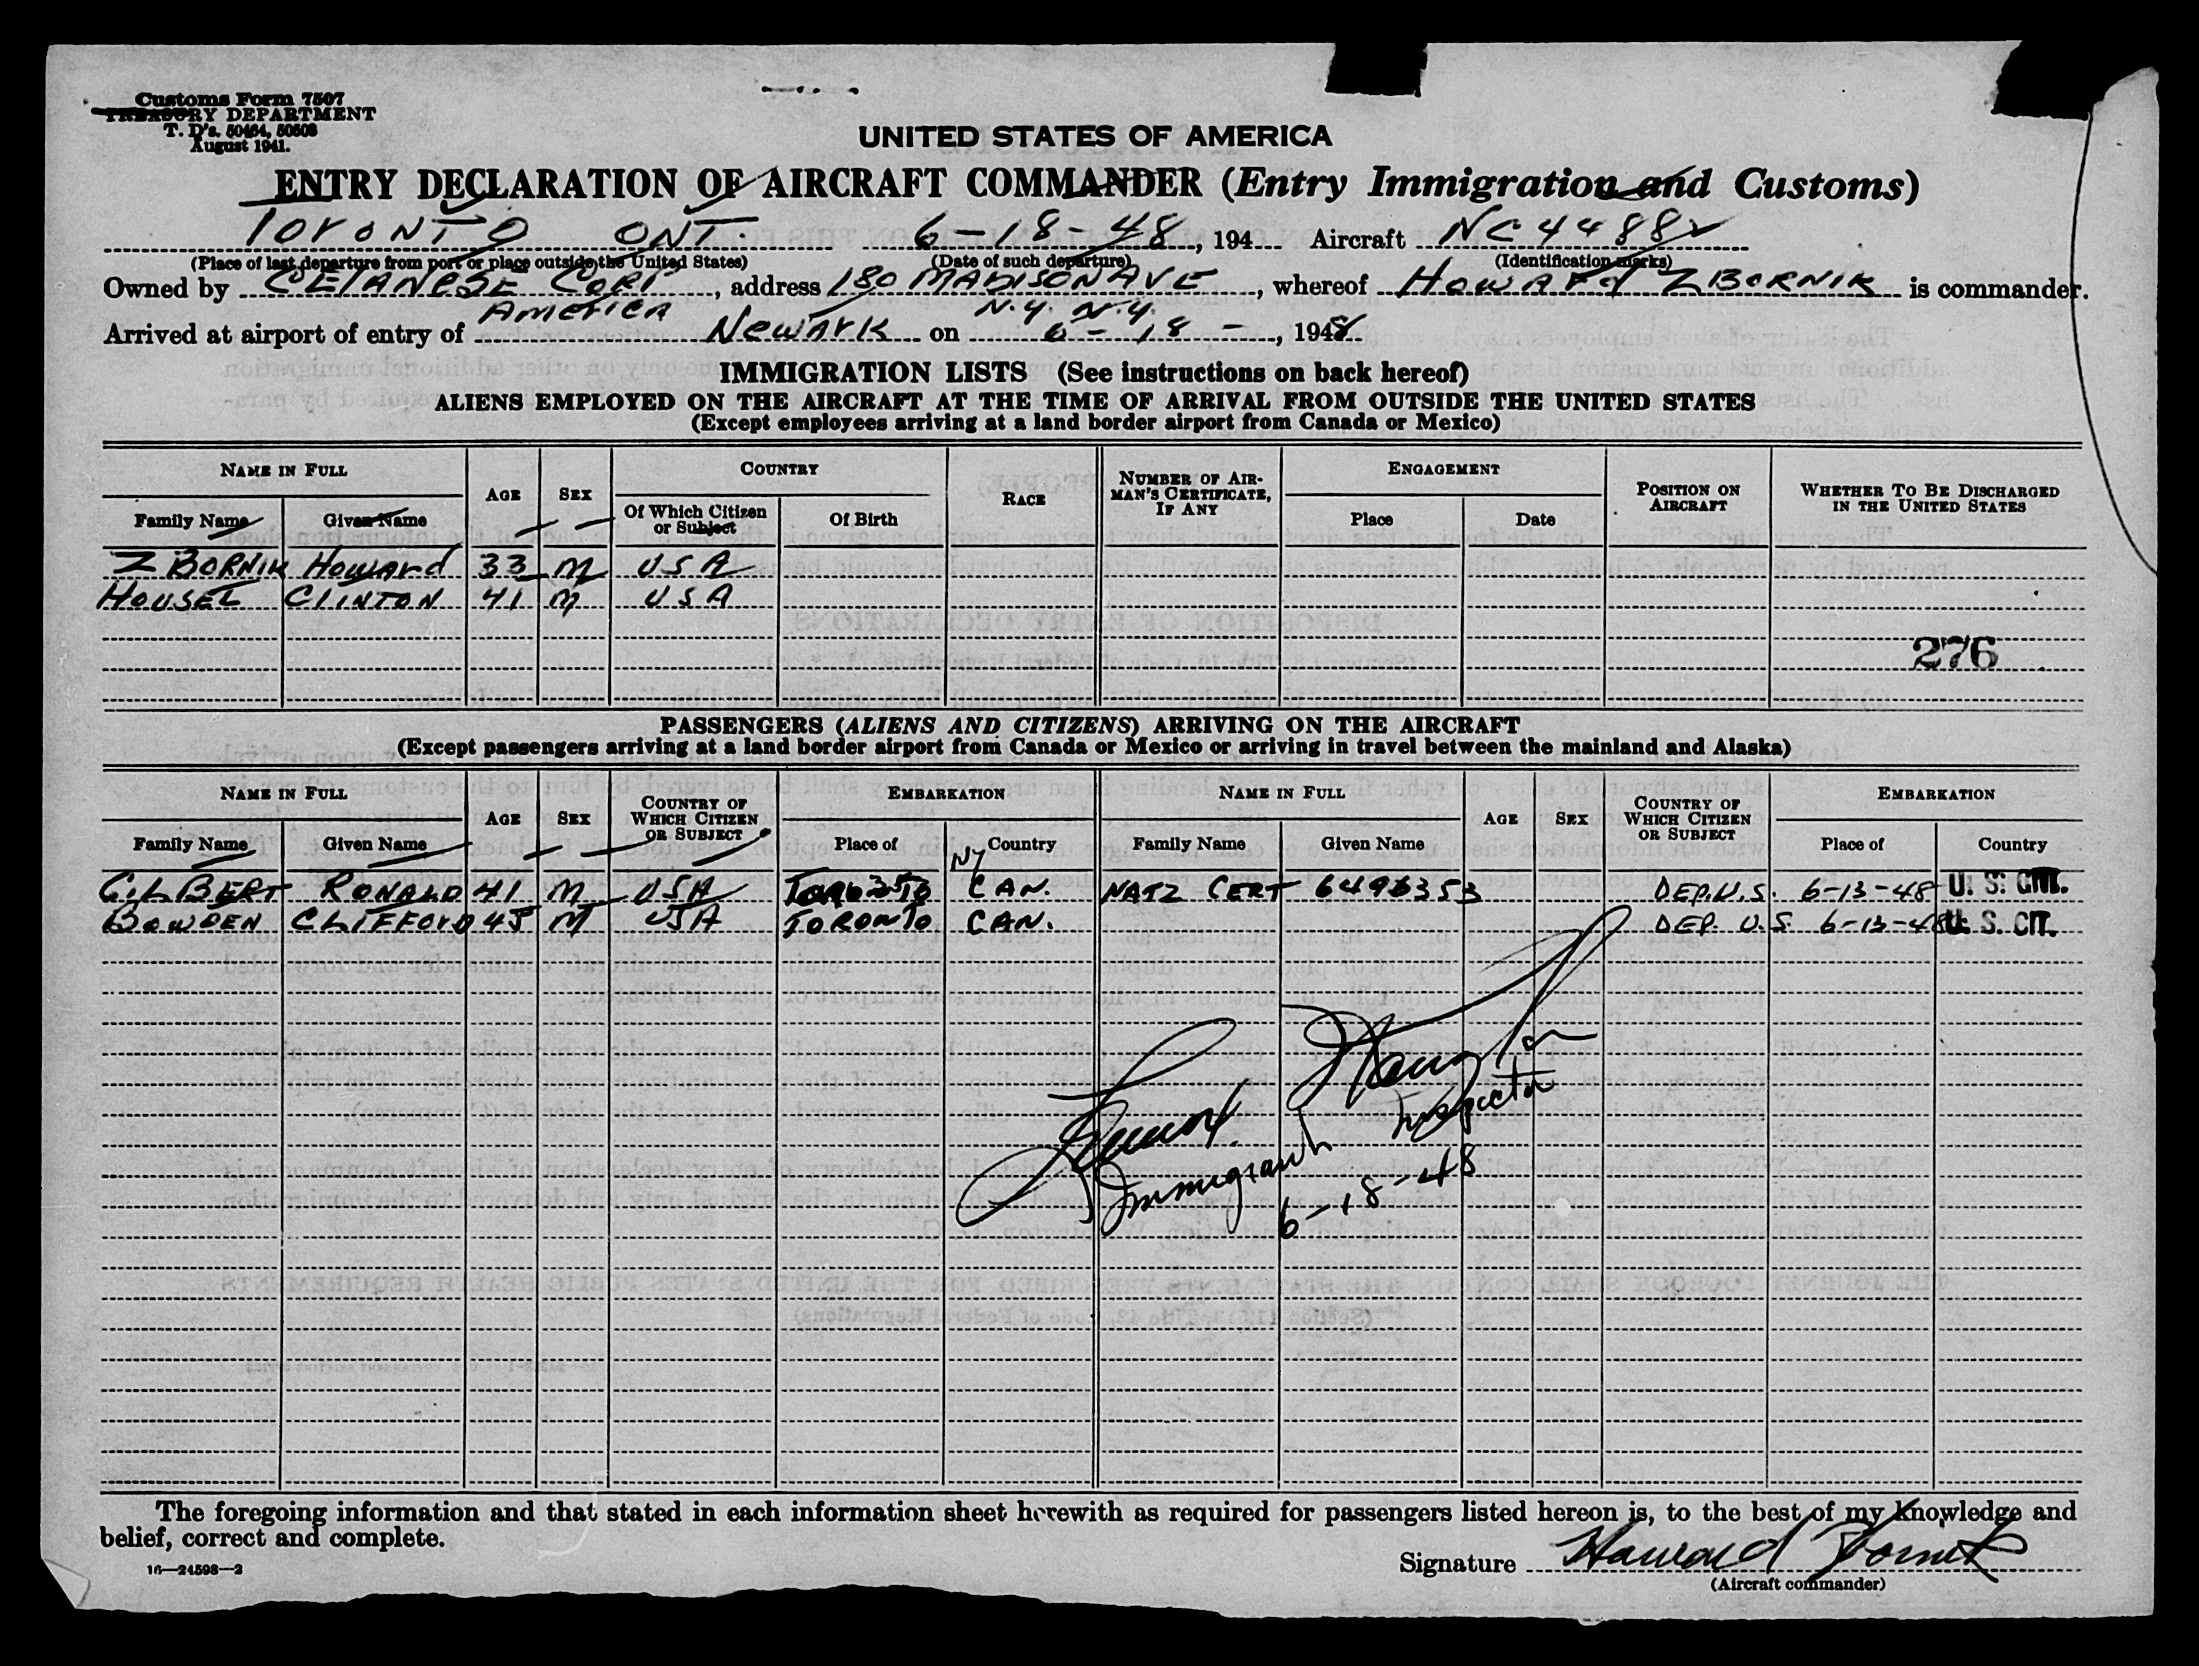 Customs Form 7507
TREASURY DEPARTMENT
T. D's. 50464, 50608
August 1941.
UNITED STATES OF AMERICA
ENTRY DECLARATION OF AIRCRAFT COMMANDER (Entry Immigration and Customs)
TORONTO ONT. 6-18-48, 194 Aircraft NC 44882
(Place of last departure from port or place outside the United States) (Date of such departure) (Identification marks)
Owned by CELANESE CORP, address 180 MADISON AVE, whereof HOWARD ZBORNIK is commander.
America N.Y. N.Y.
Arrived at airport of entry of NEWARK on 6-18-, 1948
IMMIGRATION LISTS (See instructions on back hereof)
ALIENS EMPLOYED ON THE AIRCRAFT AT THE TIME OF ARRIVAL FROM OUTSIDE THE UNITED STATES
(Except employees arriving at a land border airport from Canada or Mexico)
NAME IN FULL AGE SEX COUNTRY RACE NUMBER OF AIRMAN'S CERTIFICATE, IF ANY ENGAGEMENT POSITION ON AIRCRAFT WHETHER TO BE DISCHARGED IN THE UNITED STATES
Family Name Given Name Of Which Citizen or Subject Of Birth Place Date
ZBORNIK HOWARD 33 M USA
HOUSEL CLINTON 41 M USA
276
PASSENGERS (ALIENS AND CITIZENS) ARRIVING ON THE AIRCRAFT
(Except passengers arriving at a land border airport from Canada or Mexico or arriving in travel between the mainland and Alaska)
NAME IN FULL AGE SEX COUNTRY OF WHICH CITIZEN OR SUBJECT EMBARKATION NAME IN FULL AGE SEX COUNTRY OF WHICH CITIZEN OR SUBJECT EMBARKATION
Family Name Given Name Place of Country Family Name Given Name Place of Country
NY
GILBERT RONALD 41 M USA TORONTO CAN. NATZ CERT 6496353 DEP. U.S. 6-13-48 U. S. CIT.
BOWDEN CLIFFORD 45 M USA TORONTO CAN. DEP. U.S 6-13-48 U. S. CIT.
Immigrant Inspector
6-18-48
The foregoing information and that stated in each information sheet herewith as required for passengers listed hereon is, to the best of my knowledge and
belief, correct and complete.
16—24598—2
Signature Howard Zbornik
(Aircraft commander)